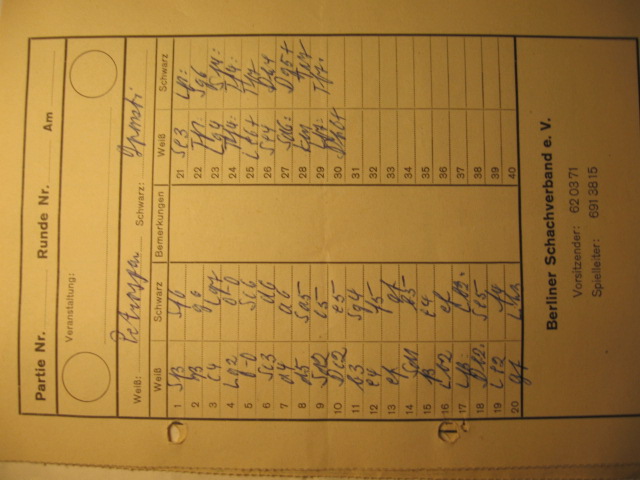 Partie Nr. Runde Nr. Am
Veranstaltung:
Weiß: Petrosjan Schwarz:
Weiß Schwarz Bemerkungen Weiß Schwarz
1 Sf3 Sf6 21 Se3 Lf1:
2 g3 g6 22 Tf1: Sg6
3 c4 Lg7 23 Lg4 Sf4:
4 Lg2 0-0 24 Tf4: Tf4:
5 0-0 Sc6 25 Le6+ Tf7
6 Sc3 d6 26 Se4 Dh4
7 d4 a6 27 Sd6: Dg5+
8 d5 Sa5 28 Kh1 Ta7
9 Sd2 c5 29 Lf7: Tf7:
10 Dc2 e5 30 Dh8+
11 b3 Sg4 31
12 e4 f5 32
13 ef gf 33
14 Sd1 b5 34
15 f3 e4 35
16 Lb2 ef 36
17 Lf3: Lb2: 37
18 Db2: Se5 38
19 Le2 f4 39
20 gf Lh3 40
Berliner Schachverband e. V.
Vorsitzender: 62 03 71
Spielleiter: 691 38 15